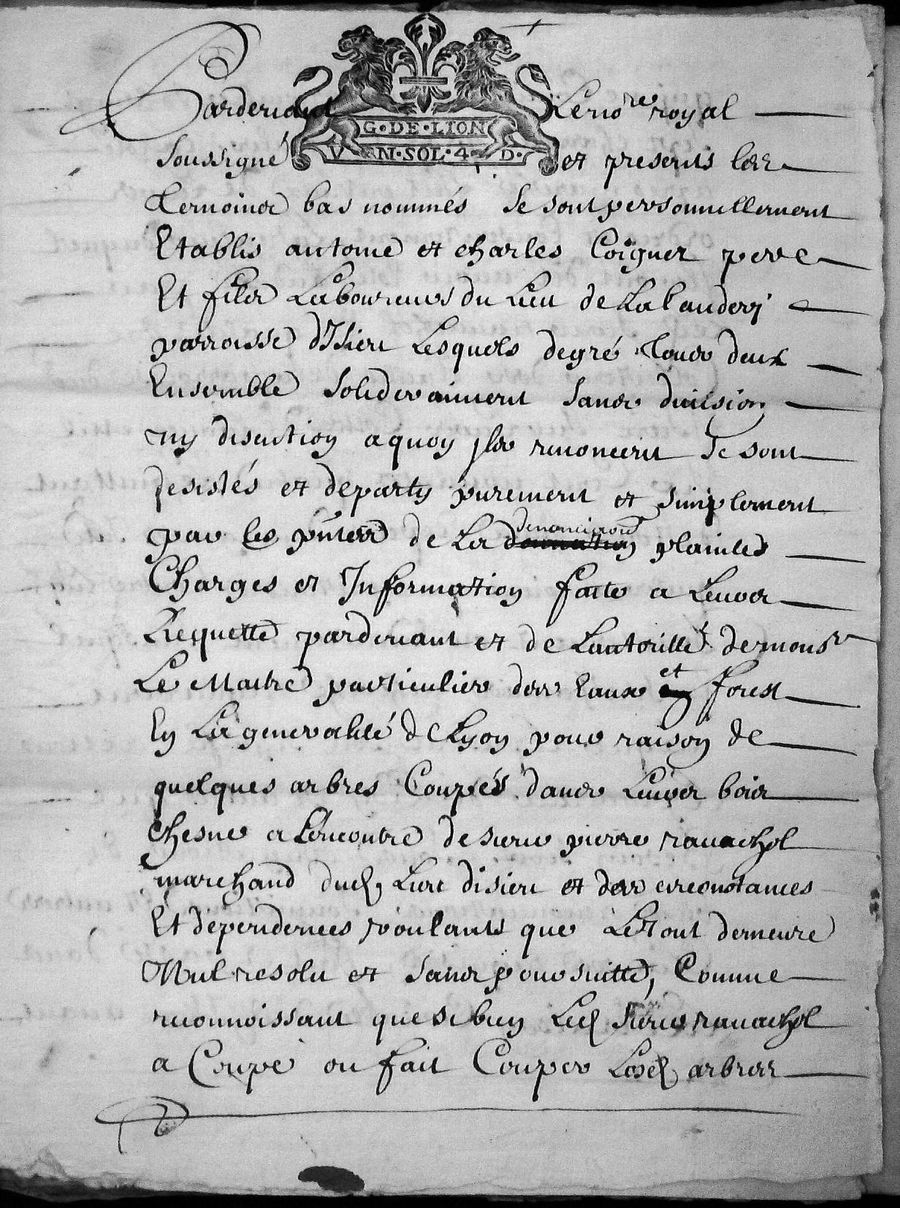 Pardevant Le no.re royal
G·DE·LION
V N·SOL·4·D·
soussigné et presents les
temoins bas nommés se sont personnellement
Etablis antoine et charles Coignet pere
Et fils Laboureurs du Lieu de
parroisse d'Isieu Lesquels de gré tous deux
Ensemble solidairement sans division
ny discution a quoy ils renoncent se sont
desistés et departy purement et simplement
par les pntes de La denonciaon plaintes
Charges et Information faite a Leurs
Requette pardevant et de Lautorité de monsr
Le Maitre particulier des Eaux et forest
En La generalité de Lyon pour raison de
quelques arbres Coupés dans Leurs bois
chesne a Lencontre de sieur pierre ravachol
marchand dud. Lieu disieu et des circonstances
Et dependences voulants que Le tout demeure
Nul resolu et sans poursuitte, Comme
reconnoissant que si bien Led. sieur ravachol
a Coupé ou fait Couper Lesd. arbres